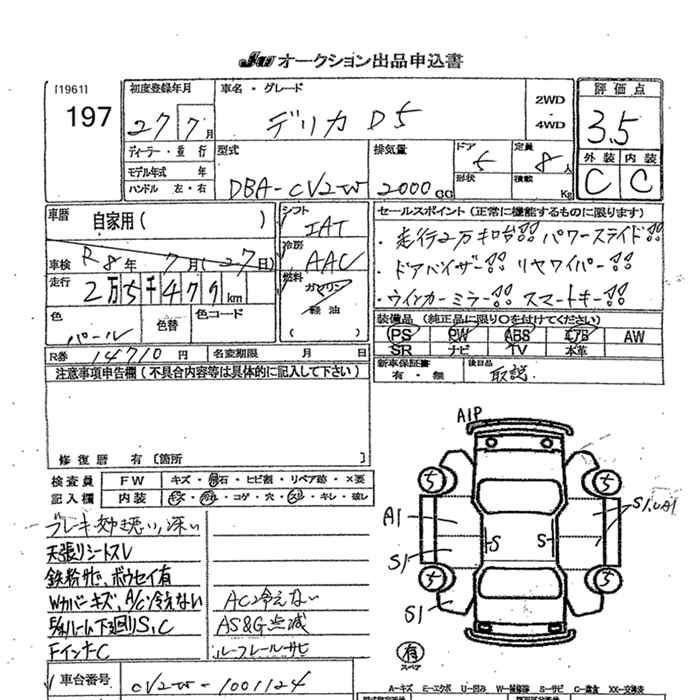 JU オークション出品申込書
[1961]
197
初度登録年月
27 7月
車名・グレード
デリカ D5
2WD
・
4WD
評価点
3.5
外装 内装
C C
ディーラー・並行
モデル年式 年
ハンドル 左・右
型式
DBA-CV2W
排気量
2000 CC
ドア
5
形状
定員
8人
積載
Kg
車歴
自家用( )
車検 R8年 7月(27日)
走行 2万5千477km
シフト
IAT
冷房
AAC
燃料
ガソリン
軽油
( )
セールスポイント(正常に機能するものに限ります)
・走行2万キロ台!! パワースライド!!
・ドアバイザー!! リヤワイパー!!
・ウインカーミラー!! スマートキー!!
色
パール
色替
色コード
装備品(純正品に限り○を付けてください)
PS PW ABS エアB AW
SR ナビ TV 本革
R券 14710円
名変期限 月 日
新車保証書
有・無
後日品
取説
注意事項申告欄(不具合内容等は具体的に記入して下さい)
修復歴 有〔箇所 〕
検査員
記入欄
FW キズ・飛石・ヒビ割・リペア跡・×要
内装 コゲ・穴・キレ・破レ
ブレーキ効き悪い,深い
天張りシートスレ
鉄粉サビ,ボウセイ有
Wカバーキズ,A/C冷えない
下廻りS,C
FインナーC
AC冷えない
AS&G点滅
ルーフレールサビ
車台番号
CV2W-1001124
A1P
A1
S1
S1
S1,UA1
S
S
5
5
5
5
有
スペア
A=キズ E=エクボ U=凹み W=補修跡 S=サビ C=腐食 XX=交換済